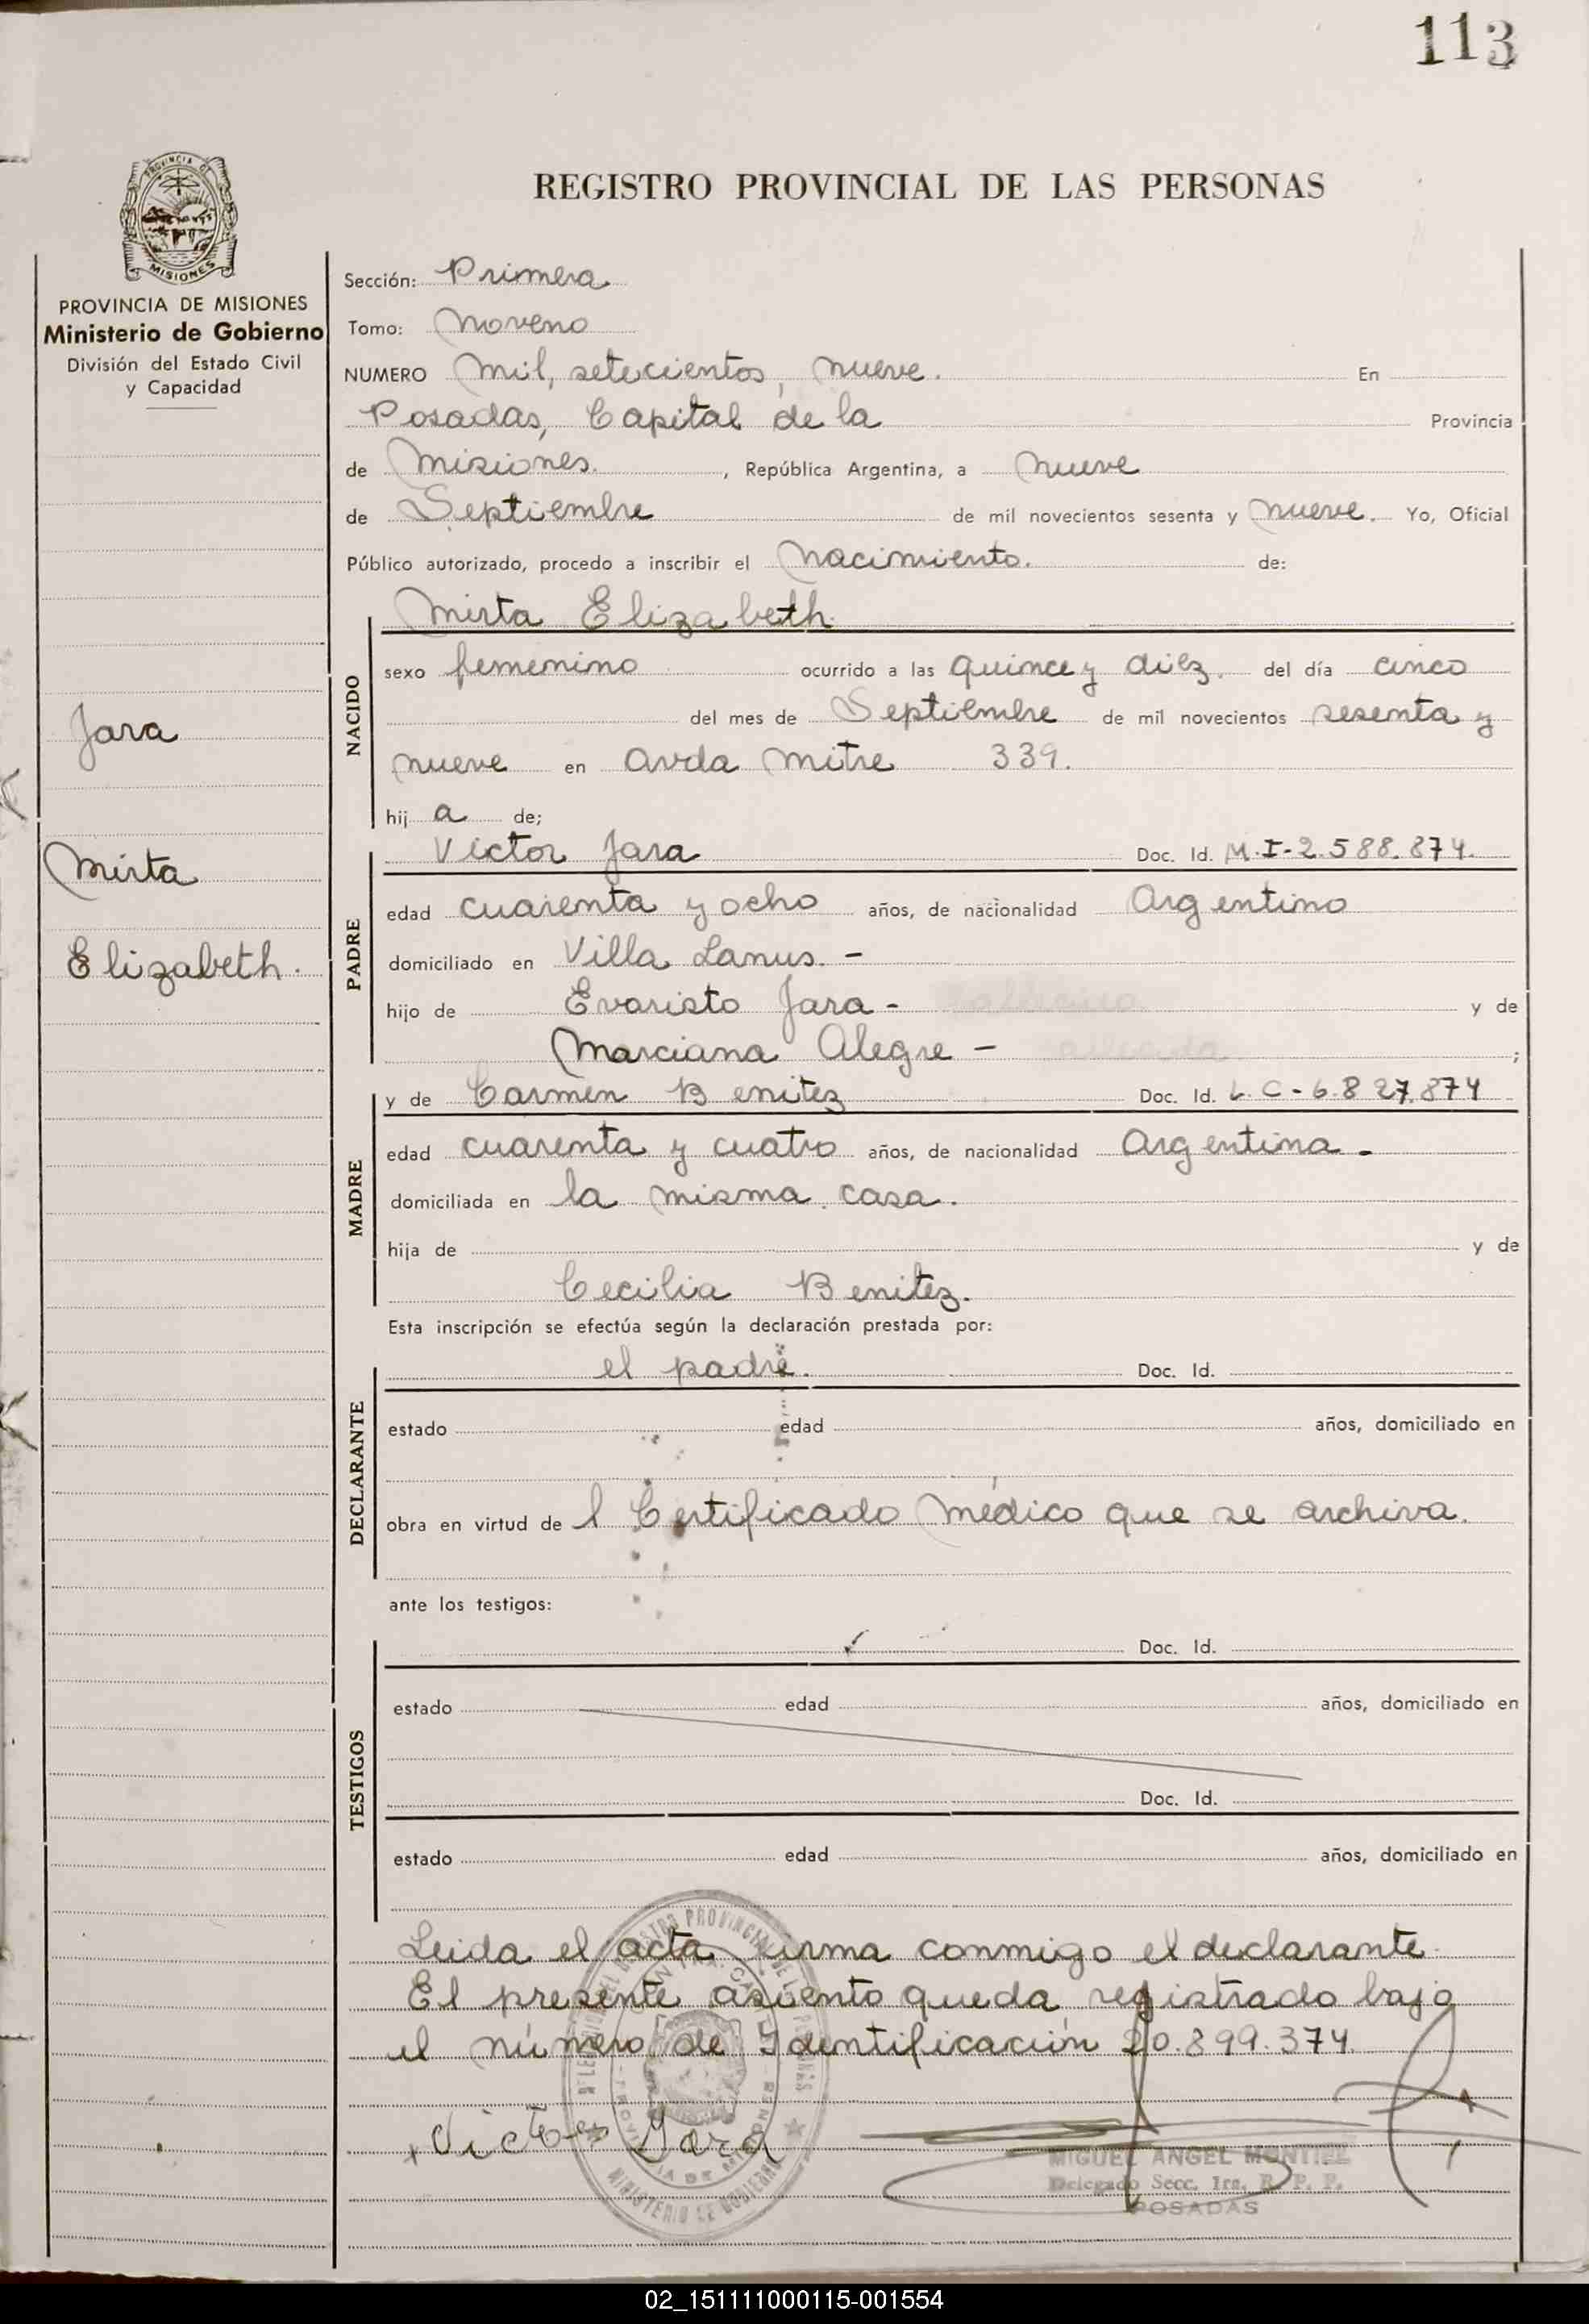 113
PROVINCIA DE
MISIONES
REGISTRO PROVINCIAL DE LAS PERSONAS
PROVINCIA DE MISIONES
Ministerio de Gobierno
División del Estado Civil
y Capacidad
Jara
Mirta
Elizabeth.
Sección: Primera
Tomo: Noveno
NUMERO Mil, setecientos, nueve. En
Posadas, Capital de la Provincia
de Misiones. , República Argentina, a nueve
de Septiembre de mil novecientos sesenta y nueve. Yo, Oficial
Público autorizado, procedo a inscribir el Nacimiento. de:
Mirta Elizabeth
NACIDO
sexo femenino ocurrido a las quince y diez. del día cinco
del mes de Septiembre de mil novecientos sesenta y
nueve en Avda Mitre 339.
hij a de;
PADRE
Victor Jara Doc. Id. M.I-2.588.874.
edad cuarenta y ocho años, de nacionalidad Argentino
domiciliado en Villa Lanus. -
hijo de Evaristo Jara - y de
Marciana Alegre - ;
MADRE
y de Carmen Benitez Doc. Id. L.C-6.827.874
edad cuarenta y cuatro años, de nacionalidad Argentina -
domiciliada en la misma casa.
hija de y de
Cecilia Benitez.
Esta inscripción se efectúa según la declaración prestada por:
DECLARANTE
el padre. Doc. Id.
estado edad años, domiciliado en
obra en virtud de l Certificado Médico que se archiva.
ante los testigos:
TESTIGOS
Doc. Id.
estado edad años, domiciliado en
Doc. Id.
estado edad años, domiciliado en
Leida el acta firma conmigo el declarante
El presente asiento queda registrado bajo
el número de Identificación 20.899.374
Victor Jara
MIGUEL ANGEL MONTIEL
Delegado Secc. 1ra. R. P. P.
POSADAS
02_151111000115-001554